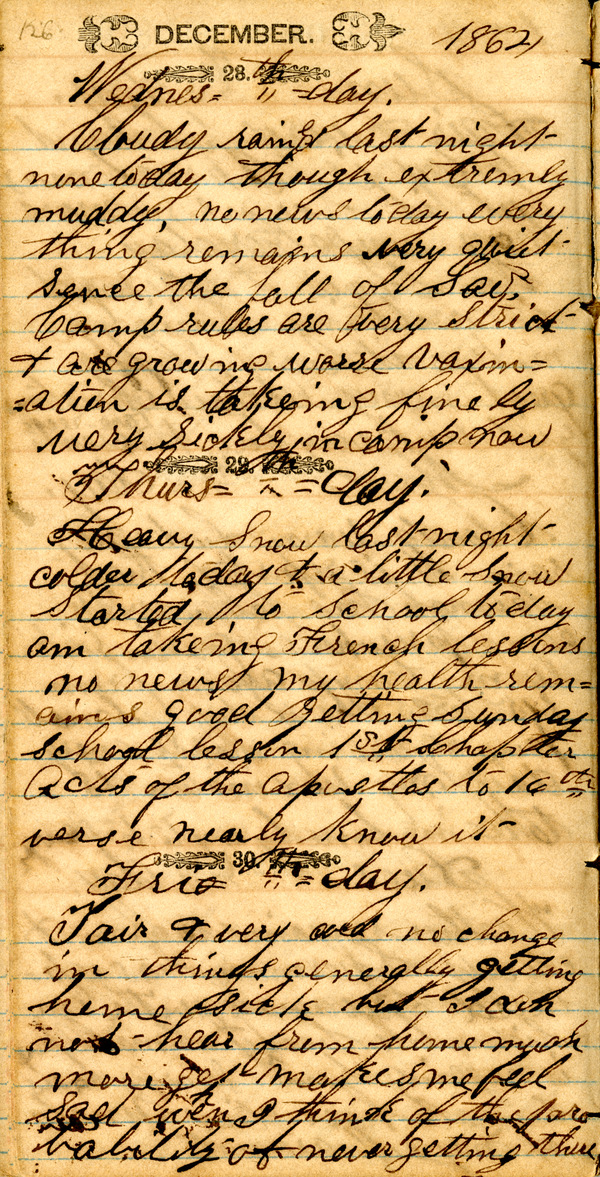 126
DECEMBER. 1864
28.th
Wednes= =day.
Cloudy raind last night
none today though extremly
muddy, no news today every
thing remains very quiet
sence the fall of Sav.
Camp rules are very strict
& are growing worse vaxin=
=ation is takeing finely
very sickly in camp now
29.th
Thurs= =day.
Heavy snow last night
colder today & a little snow
started to school today
am takeing French lessons
no news my health rem=
ains good getting Sunday
school lesson 1st Chapter
Acts of the apostles to 16th
verse nearly know it
30.th
Fri= =day.
Fair & very cold no change
in things generally getting
home sick but I can
not hear from home much
more yet makes me feel
sad when I think of the pro
bability of never getting there